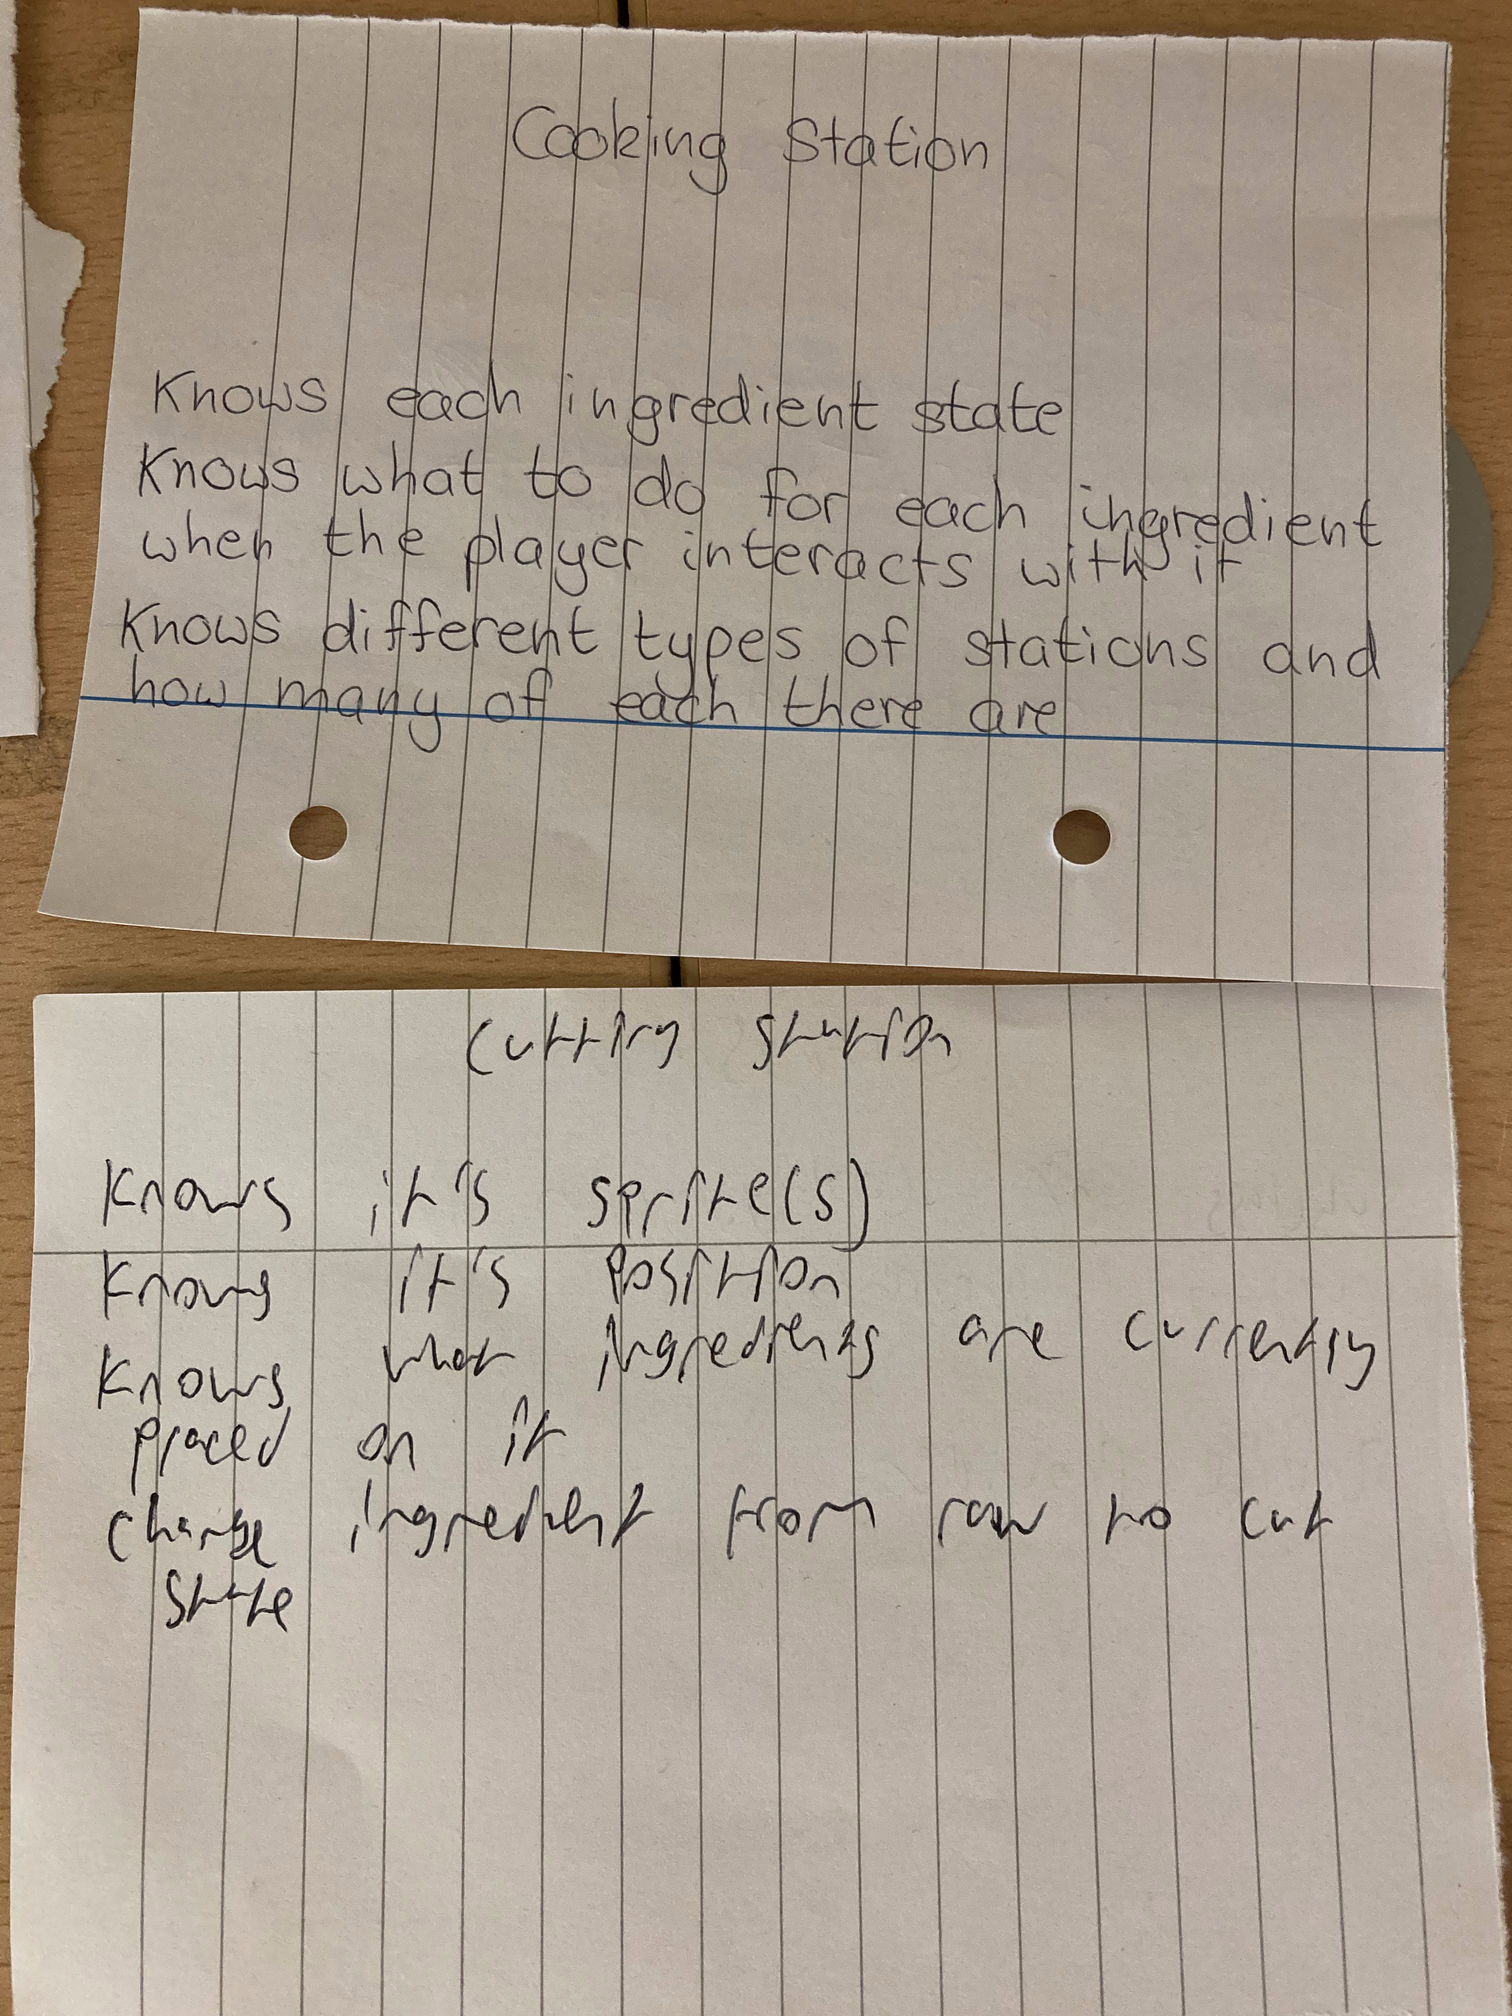 Cooking Station
Knows each ingredient state
Knows what to do for each ingredient
when the player interacts with it
Knows different types of stations and
how many of each there are
Cutting station
Knows it's sprite(s)
Knows it's position
Knows what ingredients are currently
placed on it
Change ingredient from raw to cut
state